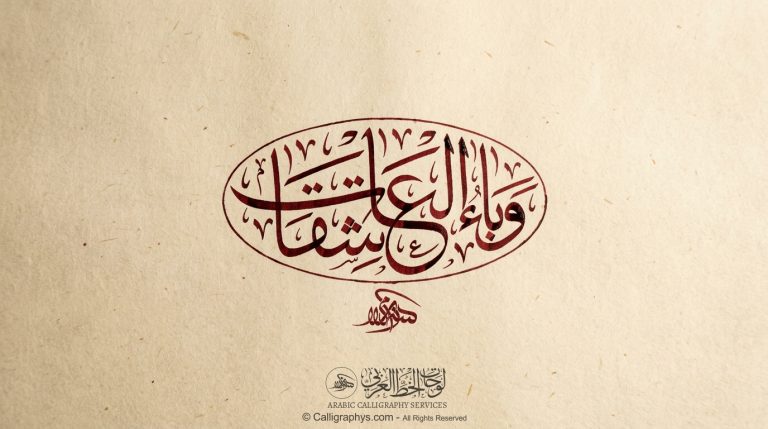 وَبَاءُ العَاشِقَات
لوحات الخط العربي
ARABIC CALLIGRAPHY SERVICES
© Calligraphys.com - All Rights Reserved